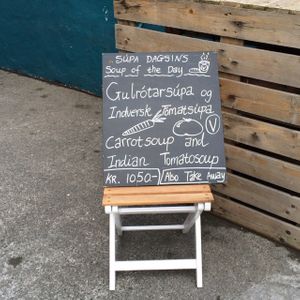 SÚPA DAGSINS
Soup of the Day
Gulrótarsúpa og
Indversk Tómatsúpa
Carrotsoup and
Indian Tomatosoup
KR. 1050.- Also Take Away
V